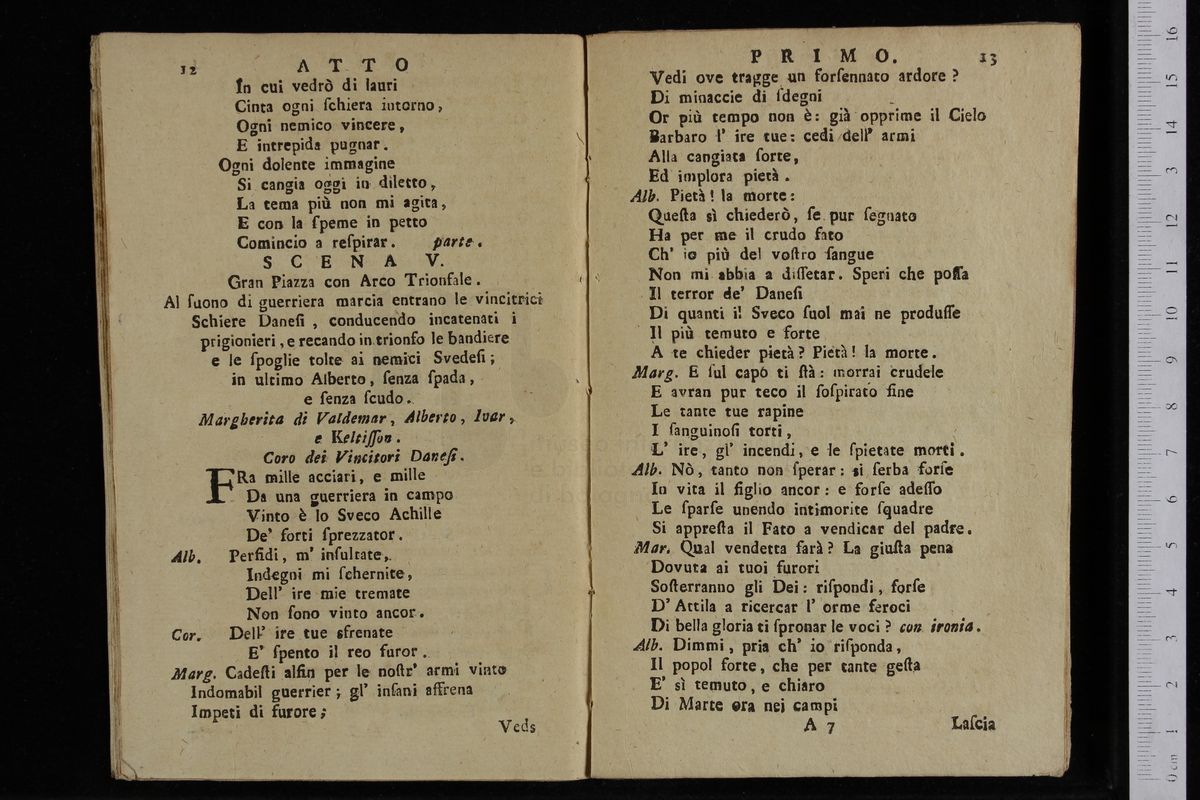 12 ATTO
In cui vedrò di lauri
Cinta ogni ſchiera intorno,
Ogni nemico vincere,
E intrepida pugnar.
Ogni dolente immagine
Si cangia oggi in diletto,
La tema più non mi agita,
E con la ſpeme in petto
Comincio a reſpirar. parte.
SCENA V.
Gran Piazza con Arco Trionfale.
Al ſuono di guerriera marcia entrano le vincitrici
Schiere Daneſi , conducendo incatenati i
prigionieri, e recando in trionfo le bandiere
e le ſpoglie tolte ai nemici Svedeſi;
in ultimo Alberto, ſenza ſpada,
e ſenza ſcudo.
Margherita di Valdemar, Alberto, Ivar,
e Keltiſſon.
Coro dei Vincitori Daneſi.
FRa mille acciari, e mille
Da una guerriera in campo
Vinto è lo Sveco Achille
De' forti ſprezzator.
Alb. Perfidi, m' inſultate,
Indegni mi ſchernite,
Dell' ire mie tremate
Non ſono vinto ancor.
Cor. Dell' ire tue sfrenate
E' ſpento il reo furor.
Marg. Cadeſti alfin per le noſtr' armi vinto
Indomabil guerrier; gl' inſani affrena
Impeti di furore;
Veds
PRIMO. 13
Vedi ove tragge un forſennato ardore?
Di minaccie di ſdegni
Or più tempo non è: già opprime il Cielo
Barbaro l' ire tue: cedi dell' armi
Alla cangiata ſorte,
Ed implora pietà.
Alb. Pietà! la morte:
Queſta sì chiederò, ſe pur ſegnato
Ha per me il crudo fato
Ch' io più del voſtro ſangue
Non mi abbia a diſſetar. Speri che poſſa
Il terror de' Daneſi
Di quanti il Sveco ſuol mai ne produſſe
Il più temuto e forte
A te chieder pietà? Pietà! la morte.
Marg. E ſul capo ti ſtà: morrai crudele
E avran pur teco il ſoſpirato fine
Le tante tue rapine
I ſanguinoſi torti,
L' ire, gl' incendi, e le ſpietate morti.
Alb. Nò, tanto non ſperar: si ſerba forſe
In vita il figlio ancor: e forſe adeſſo
Le ſparſe unendo intimorite ſquadre
Si appreſta il Fato a vendicar del padre.
Mar. Qual vendetta farà? La giuſta pena
Dovuta ai tuoi furori
Soſterranno gli Dei: riſpondi, forſe
D' Attila a ricercar l' orme feroci
Di bella gloria ti ſpronar le voci? con ironia.
Alb. Dimmi, pria ch' io riſponda,
Il popol forte, che per tante geſta
E' sì temuto, e chiaro
Di Marte ora nei campi
A 7 Laſcia